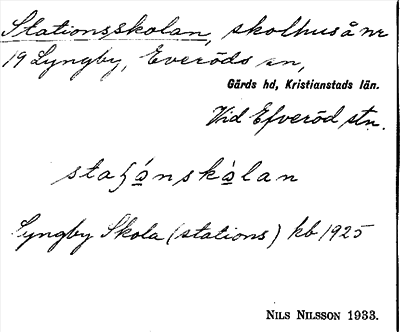 Stationsskolan, skolhus å nr
19 Lyngby, Everöds sn,
Gärds hd, Kristianstads län.
Vid Efveröd stn.
staʃónskọ̀lan
Lyngby Skola (stations) kb 1925
NILS NILSSON 1933.